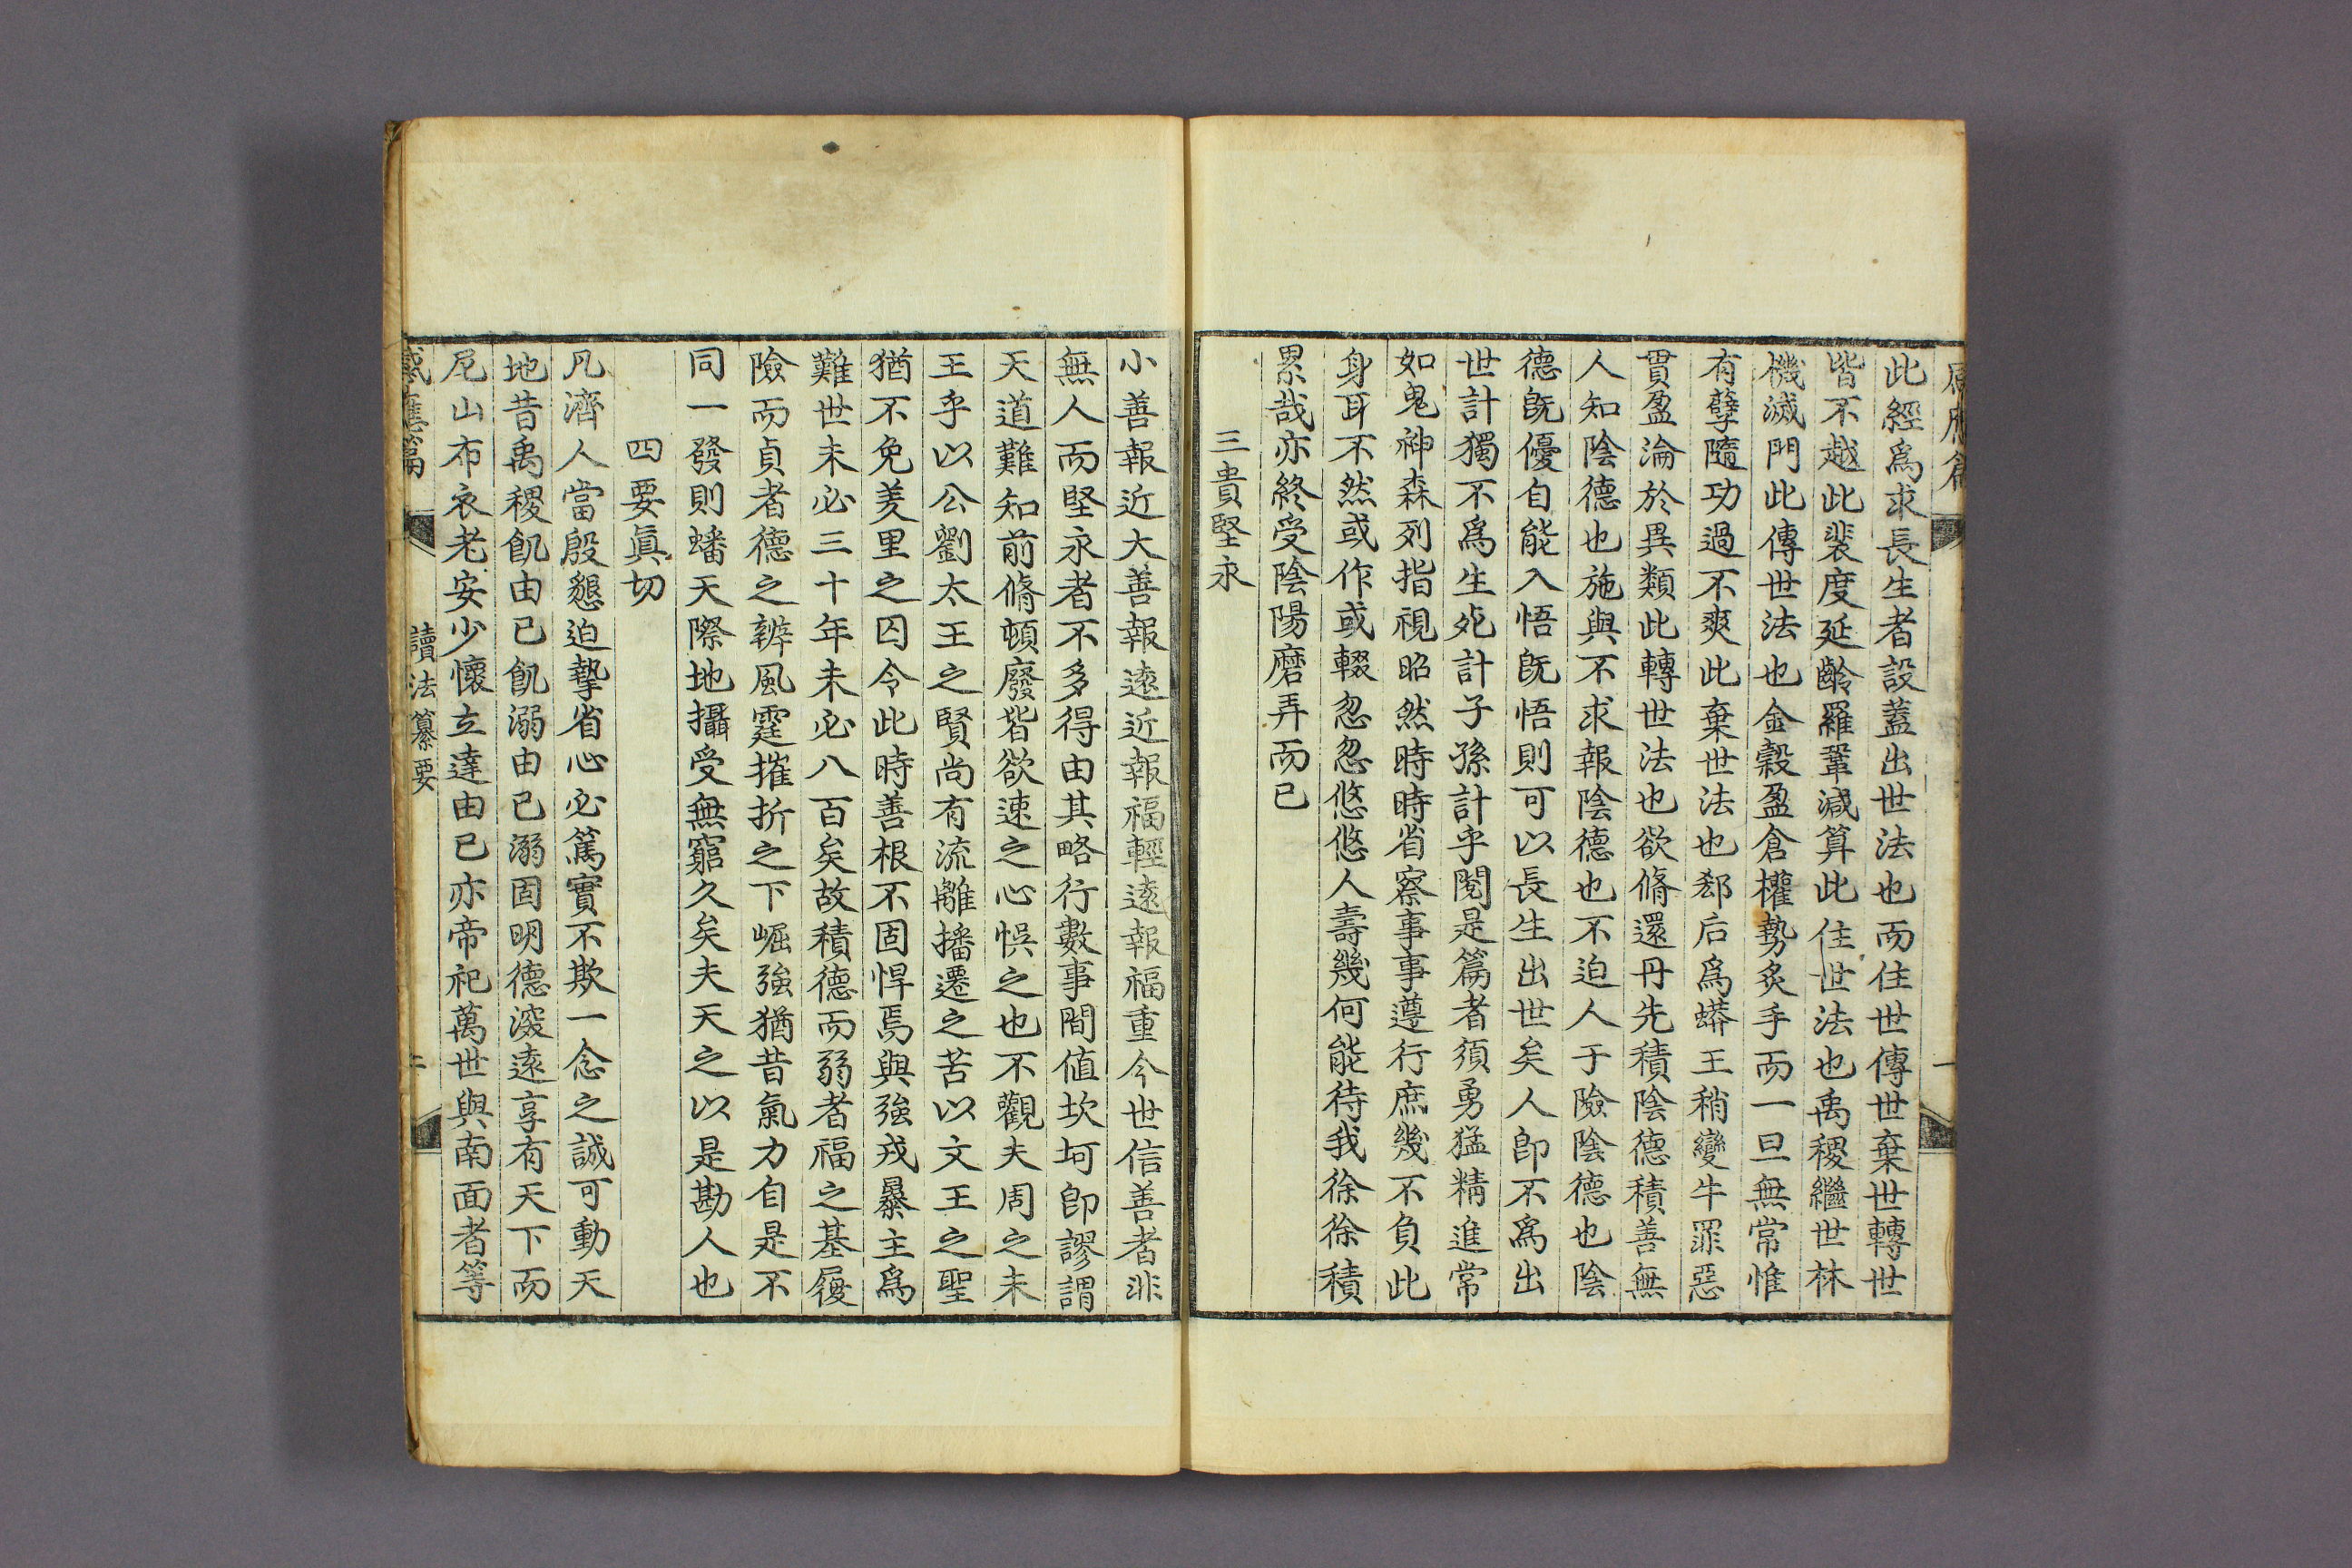 此經爲求長生者設蓋出世法也而住世傳世棄世轉世
皆不越此裴度延齡羅鞏減算此住世法也禹稷繼世林
機滅門此傳世法也金穀盈倉權勢炙手而一旦無常惟
有孽隨功過不爽此棄世法也郄后爲蟒王稍變牛罪惡
貫盈淪於異類此轉世法也欲脩還丹先積陰德積善無
人知陰德也施與不求報陰德也不迫人于險陰德也陰
德旣優自能入悟旣悟則可以長生出世矣人卽不爲出
世計獨不爲生死計子孫計乎閱是篇者須勇猛精進常
如鬼神森列指視昭然時時省察事事遵行庶幾不負此
身耳不然或作或輟忽忽悠悠人壽幾何能待我徐徐積
累哉亦終受陰陽磨弄而已
三貴堅永
小善報近大善報遠近報福輕遠報福重今世信善者非
無人而堅永者不多得由其略行數事間値坎坷卽謬謂
天道難知前脩頓廢皆欲速之心悞之也不觀夫周之未
王乎以公劉太王之賢尚有流離播遷之苦以文王之聖
猶不免羑里之囚令此時善根不固悍焉與強戎暴主爲
難世未必三十年未必八百矣故積德而弱者福之基履
險而貞者德之辨風霆摧折之下崛強猶昔氣力自是不
同一發則蟠天際地攝受無窮久矣夫天之以是勘人也
四要眞切
凡濟人當殷懇迫摯省心必篤實不欺一念之誠可動天
地昔禹稷飢由已飢溺由已溺固明德深遠享有天下而
尼山布衣老安少懷立達由已亦帝祀萬世與南面者等
感應篇
讀法纂要